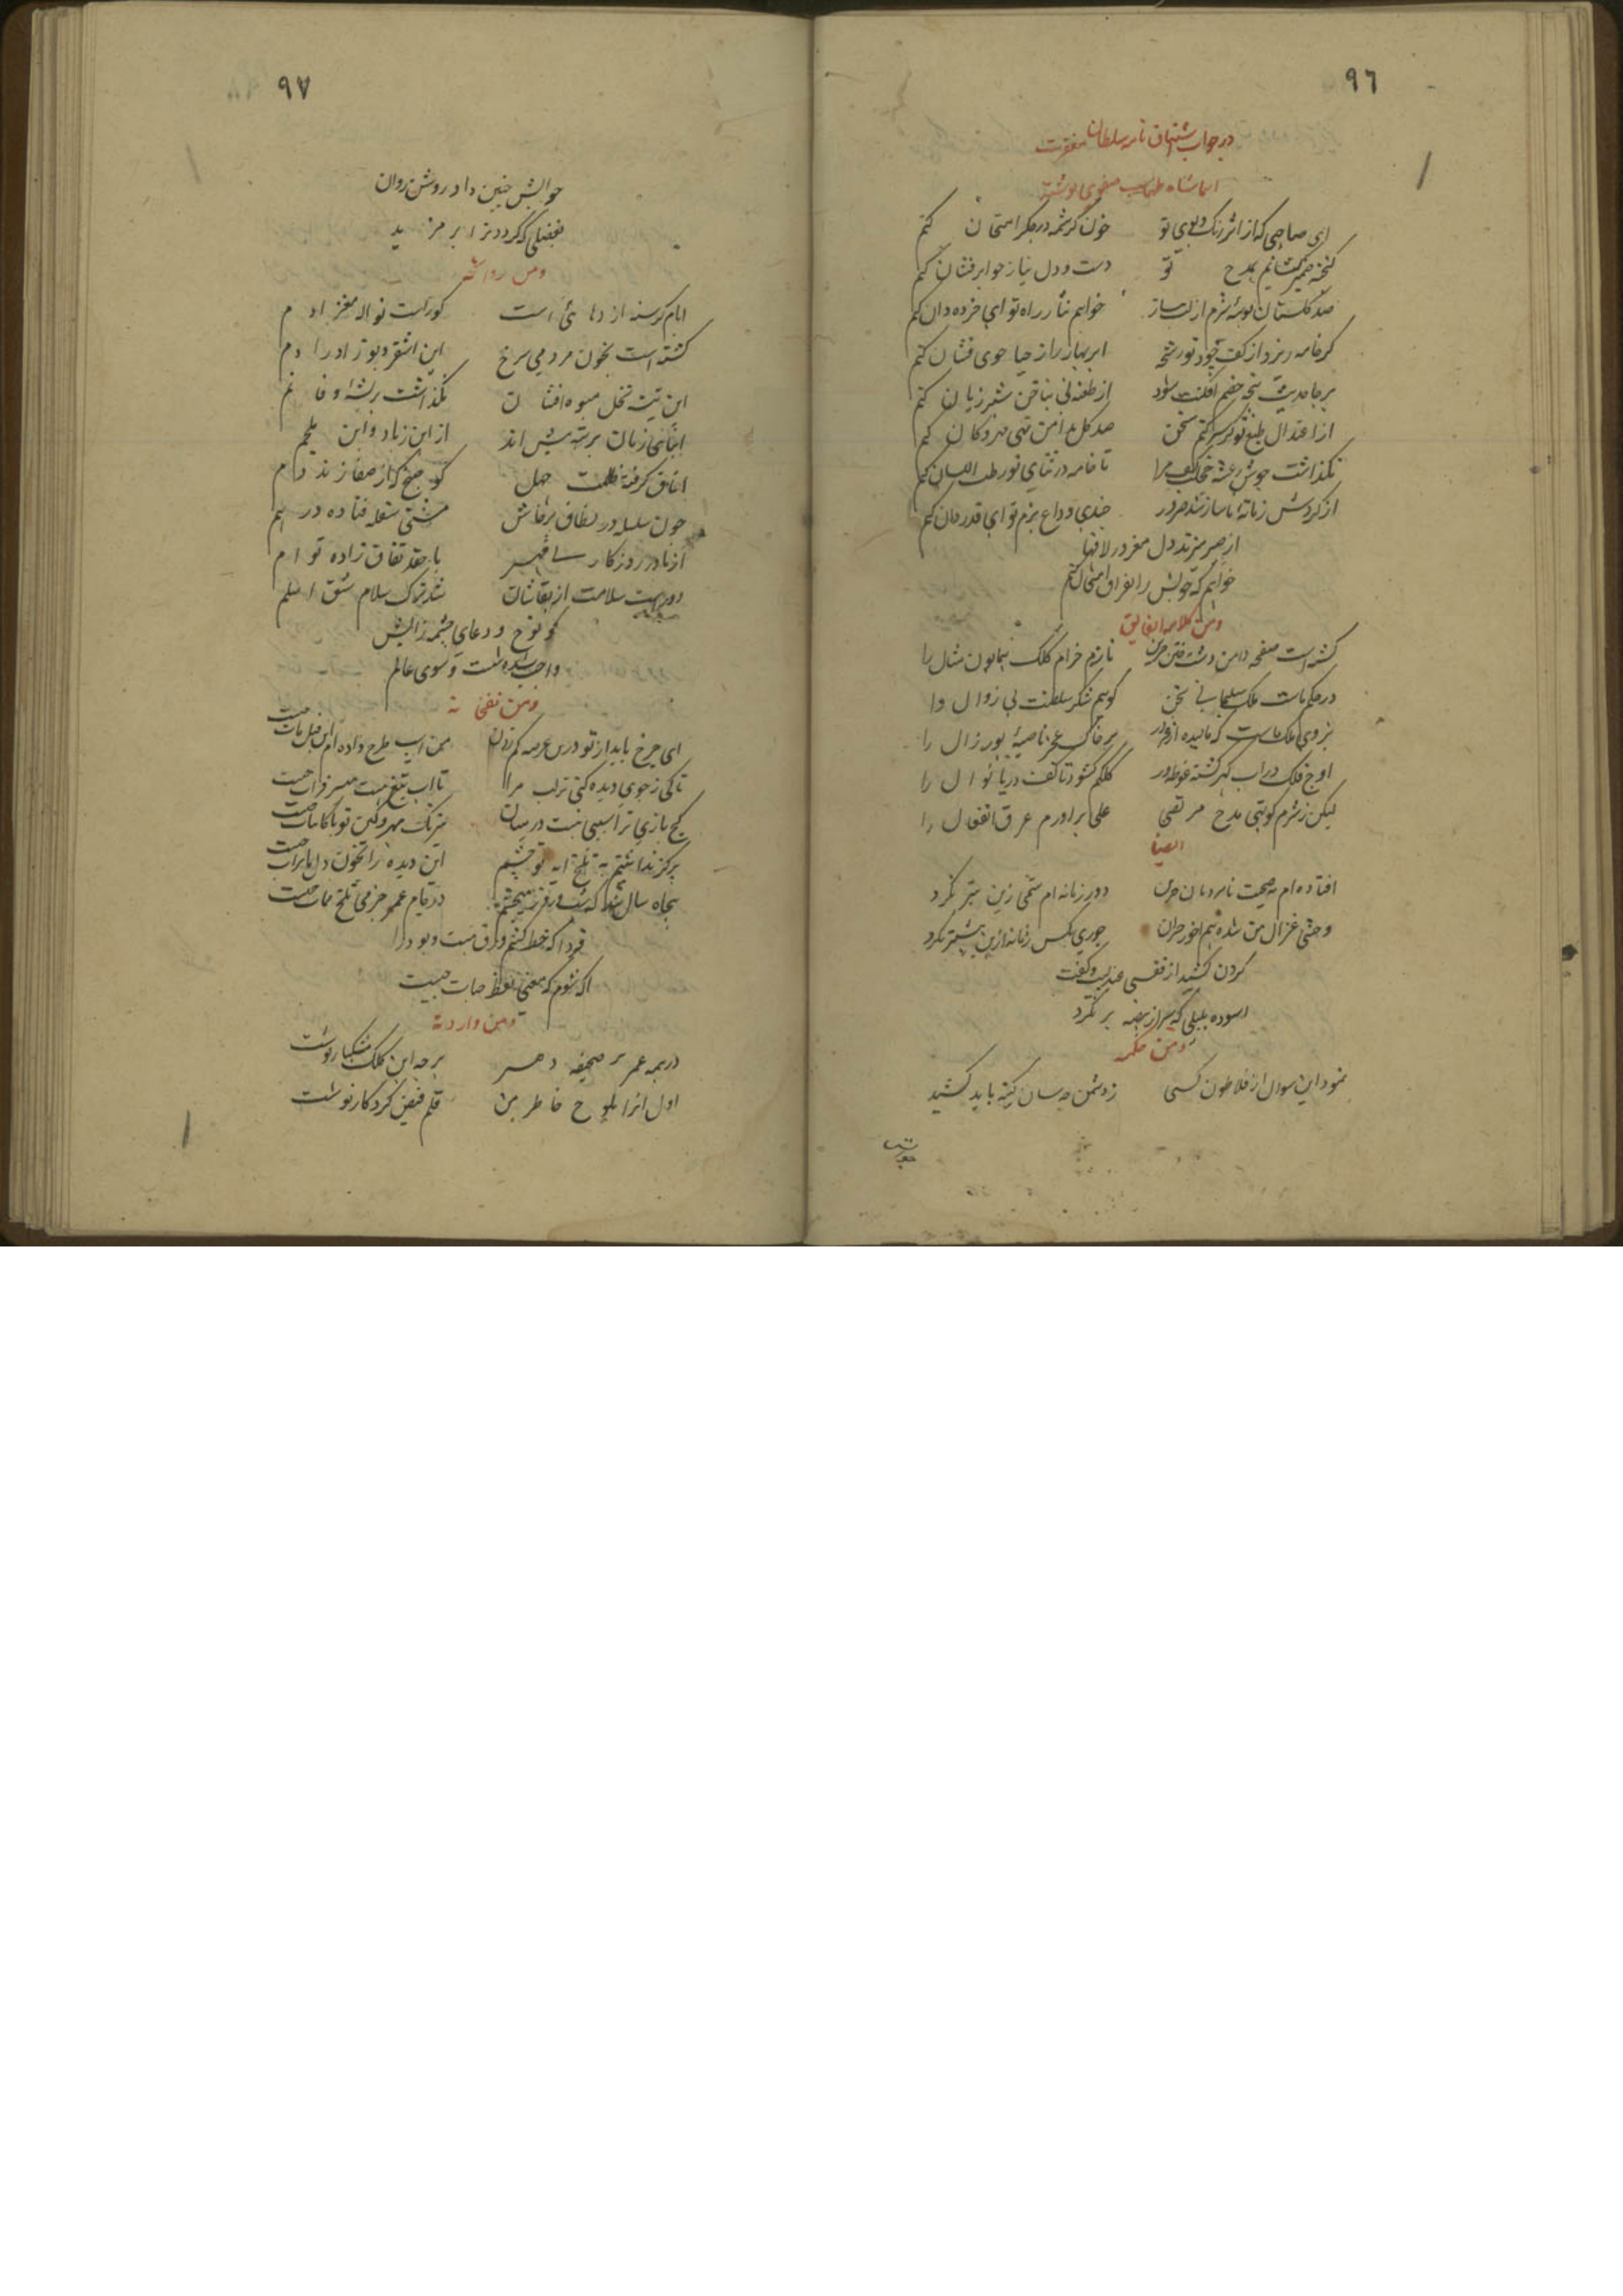 ٩٦
در جواب اشتیاق نامه سلطان مغفرت
شاه طهماسب صفوی نوشته
ای صاحبی که از اثر رنگ و بوی تو خون کرشمه در جگر امتحان کنم
گنجینه ضمیر بمدح تو دست و دل نیاز جواهر فشان کنم
صد گلستان بوسه شرم از لب نیاز خواهم نثار راه تو ای خرده دان کنم
گر خامه ریزد از کف جود تو رشحه ابر بهار را ز حیا خوی فشان کنم
هر جا حدیث پنجه خصم افکنت شود از طعنه نی بناخن شیر ژیان کنم
از اعتدال طبع تو گر سر کنم سخن صد گل بدامن تهی مهرگان کنم
نگذاشت جوش رعشه خجلت مرا تا خامه در ثنای تو رطب اللسان کنم
از گردش زمانه ناساز شد ضرور چندی وداع بزم تو ای قدردان کنم
از صبر میزند دل مغرور لافها
خواهم که خویش را بفراق امتحان کنم
ومن کلامه الفایق
گشته است صفحه دامن دشت ختن حزین نازم خرام کلک همایون مثال را
در حکم ماست ملک سلیمانی سخن گوییم شکر سلطنت بی زوال را
نیروی کلک ماست که مالیده از بر خاک عجز ناصیه پور زال را
اوج فلک در آب گهر گشته غوطه ور کلکم گشود تا کف دریا نوال را
لیکن ز شرم کوتهی مدح مرتضی علی برآورم عرق انفعال را
ایضا
افتاده ام بصحبت نامردمان حزین دور زمانه ام ستمی زین بتر نکرد
وحشی غزال من شده هم آخور خران جوری بکس زمانه ازین بیشتر نکرد
گردن کشید از قفسی عندلیب و گفت
آسوده بلبلی که سر از بیضه بر نکرد
ومن حکمه
نمود این سوال از فلاطون کسی ز دشمن چه سان کینه باید کشید
جوابش
٩٧
جوابش چنین داد روشن روان
بفضلی که گردد ترا بر مزید
ومن
ایام گرسنه اژدهائی است کو راست نواله مغز آدم
گشته است بخون مردمی سرخ این اشقر دیوزاد را دم
این تیشه نخل میوه افشان نگذاشت بریشه وفا نم
ابنای زمان بر تبه بیش اند از ابن زیاد و ابن ملجم
آفاق گرفته ظلمت جهل کو صبح که از صفا زند دم
چون سلسله در نطاق پرخاش مشتی سفله فتاده در هم
از مادر روزگار با حقد نفاق زاده توام
دور است سلامت از بقاشان شد ترک سلام شق اسلم
کو نوح و دعای چشمه زایش
واجب شده شست و شوی عالم
ومن
ای چرخ باید از تو درس عرصه کم زدن من اسب طرح داده ام این فیل مات چیست
تا کی ز جوی دیده کنی تر لب مرا تا آب تیغ هست میسر فرات چیست
کج بازی ترا سببی نیست در میان نیرنگ مهر و کین تو با کاینات چیست
هرگز نداشتم به تلخابه تو چشم این دیده را بخون دل ما برات چیست
پنجاه سال شد که در قیام عمر جز می تلخ ممات چیست
فردا که خط کشم ورق هست و بود را
آگه شوم که معنی لفظ حیات چیست
ومن وارداته
در همه عمر بر صحیفه دهر هر چه این کلک مشکبار نوشت
اول آنرا بلوح خاطر من قلم فیض کردگار نوشت